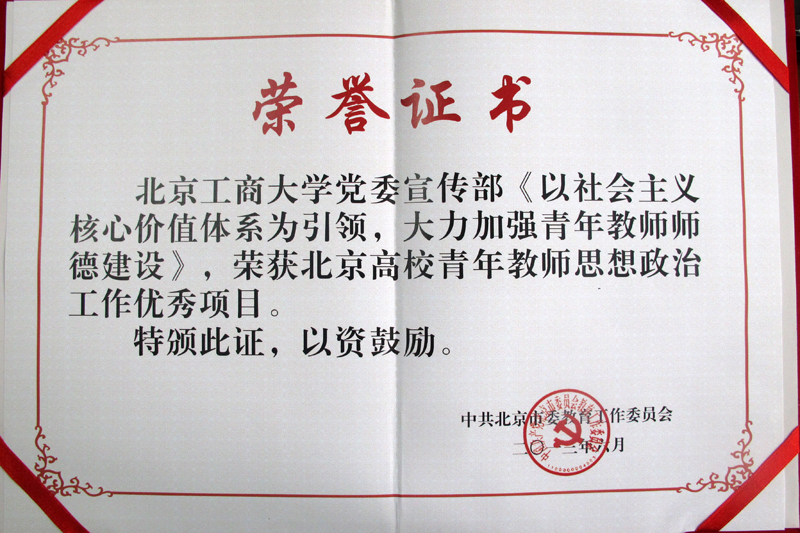 荣誉证书
北京工商大学党委宣传部《以社会主义
核心价值体系为引领，大力加强青年教师师
德建设》，荣获北京高校青年教师思想政治
工作优秀项目。
特颁此证，以资鼓励。
中共北京市委教育工作委员会
二〇一三年六月